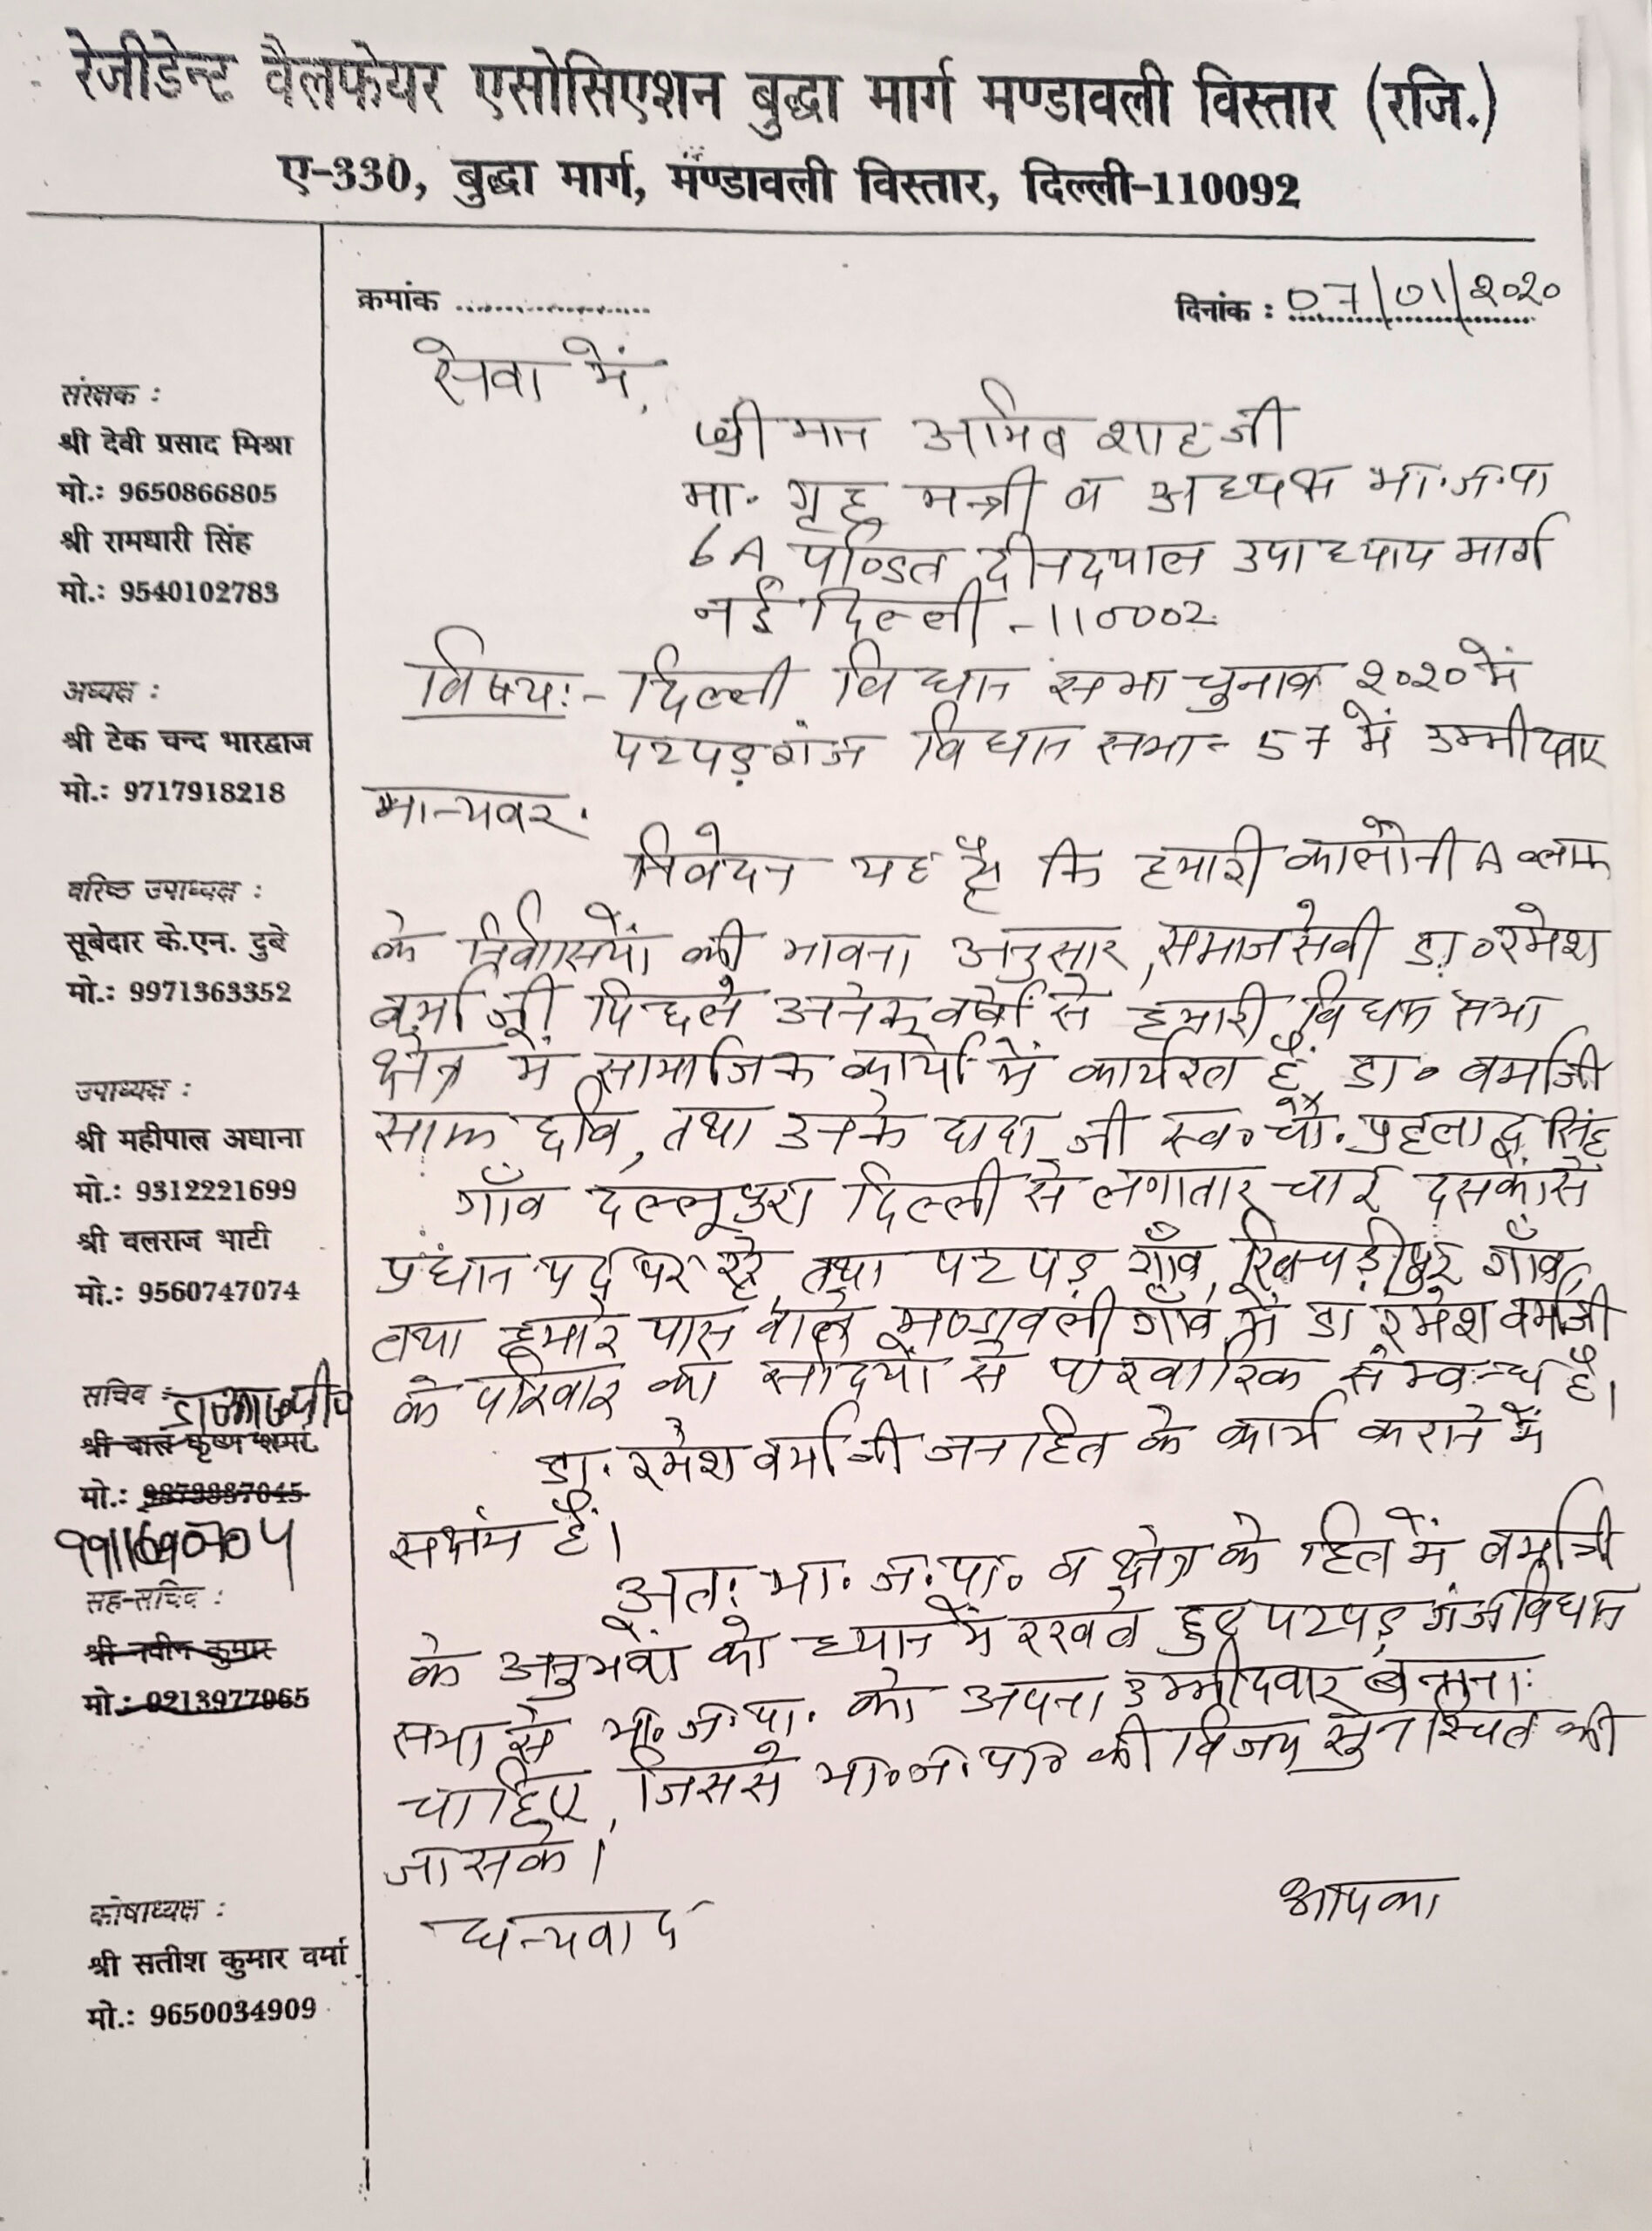 रेजीडेन्ट वैलफेयर एसोसिएशन बुद्धा मार्ग मण्डावली विस्तार (रजि.)
ए-330, बुद्धा मार्ग, मण्डावली विस्तार, दिल्ली-110092
क्रमांक ....................
दिनांक : 07/01/२०२०
संरक्षक :
श्री देवी प्रसाद मिश्रा
मो.: 9650866805
श्री रामधारी सिंह
मो.: 9540102783
अध्यक्ष :
श्री टेक चन्द भारद्वाज
मो.: 9717918218
वरिष्ठ उपाध्यक्ष :
सूबेदार के.एन. दुबे
मो.: 9971363352
उपाध्यक्ष :
श्री महीपाल अधाना
मो.: 9312221699
श्री वलराज भाटी
मो.: 9560747074
सचिव :
श्री बाल कृष्ण शर्मा
मो.: 9873887045
9911690704
सह-सचिव :
श्री नवीन कुमार
मो.: 9213977065
कोषाध्यक्ष :
श्री सतीश कुमार वर्मा
मो.: 9650034909
सेवा में,
श्री मान अमित शाह जी
मा. गृह मन्त्री व अध्यक्ष भा.ज.पा
6A पण्डित दीनदयाल उपाध्याय मार्ग
नई दिल्ली -110002
विषय:- दिल्ली विधान सभा चुनाव २०२० में
पटपड़गंज विधान सभा- 57 में उम्मीदवार
मान्यवर.
निवेदन यह है कि हमारी कालौनी A ब्लाक
के निवासियों की भावना अनुसार, समाजसेवी डा॰ रमेश
वर्मा जी पिछले अनेक वर्षों से हमारी विधान सभा
क्षेत्र में सामाजिक कार्यो में कार्यरत हैं, डा॰ वर्माजी
साफ छवि, तथा उनके दादा जी स्व॰ चौ. प्रहलाद सिंह
गाँव दल्लूपुरा दिल्ली से लगातार चार दसकों से
प्रधान पद पर रहे, तथा पटपड़ गाँव, खिचड़ीपुर गाँव,
तथा हमारे पास वाले मण्डावली गाँव में डा रमेश वर्माजी
के परिवार का सदियों से परिवारिक सम्बन्ध है।
डा. रमेश वर्मा जी जनहित के कार्य कराने में
सक्षम हैं।
अतः भा. ज.पा॰ व क्षेत्र के हित में वर्मा जी
के अनुभवों को ध्यान में रखते हुए पटपड़ गंज विधान
सभा से भा.ज.पा. को अपना उम्मीदवार बनाना
चाहिए, जिससे भा॰ज.पा॰ की विजय सुनश्चित की
जा सके।
धन्यवाद
आपका